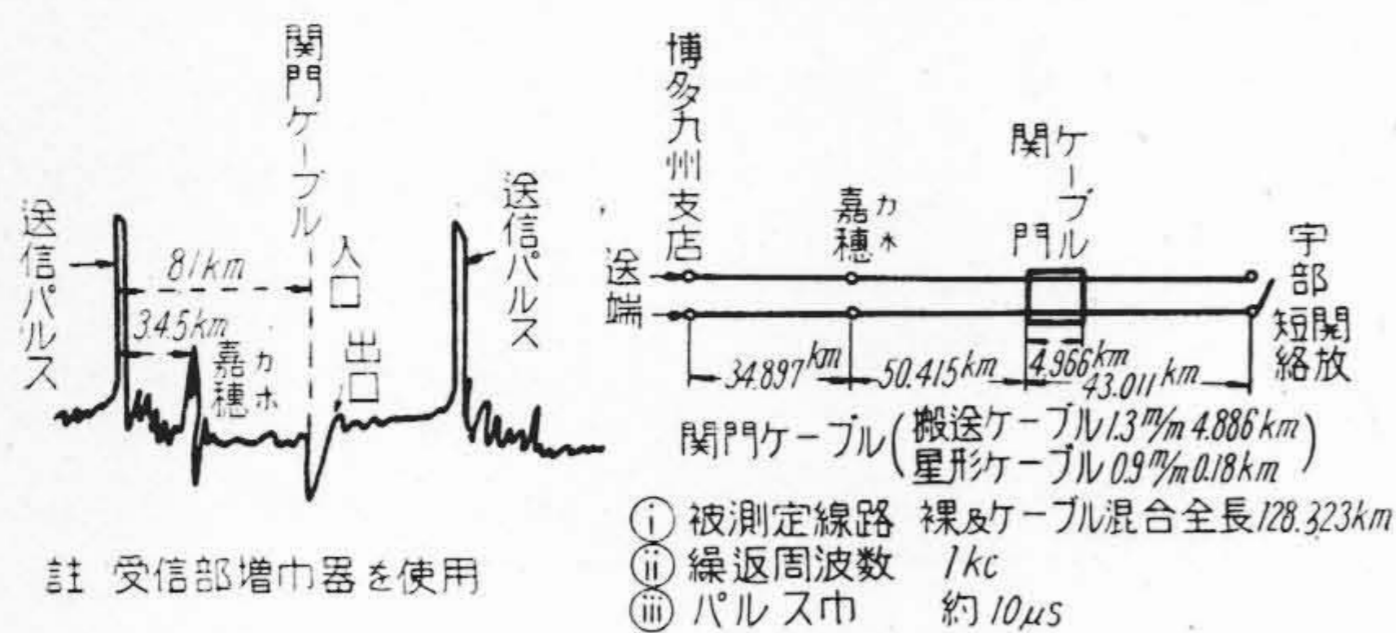 送信パルス
81km
34.5km
嘉穂
カホ
関門ケーブル
入口
出口
送信パルス
註 受信部増巾器を使用
博多九州支店
送端
嘉穂
カホ
関門
ケーブル
宇部
短絡
開放
34.897km
50.415km
4.966km
43.011km
関門ケーブル(搬送ケーブル1.3m/m 4.886km
星形ケーブル0.9m/m 0.18km)
ⓘ 被測定線路 裸及ケーブル混合全長128.323km
ⓘⓘ 繰返周波数 1kc
ⓘⓘⓘ パルス巾 約10μs